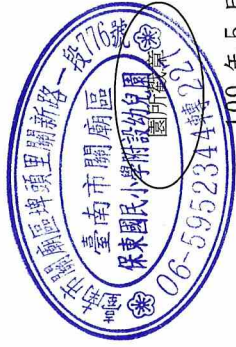 臺南市關廟區埤頭里關新路一段776號
臺南市關廟區
保東國民小學附設幼兒園
園所戳章
06-5952344轉22
109 年 5 月